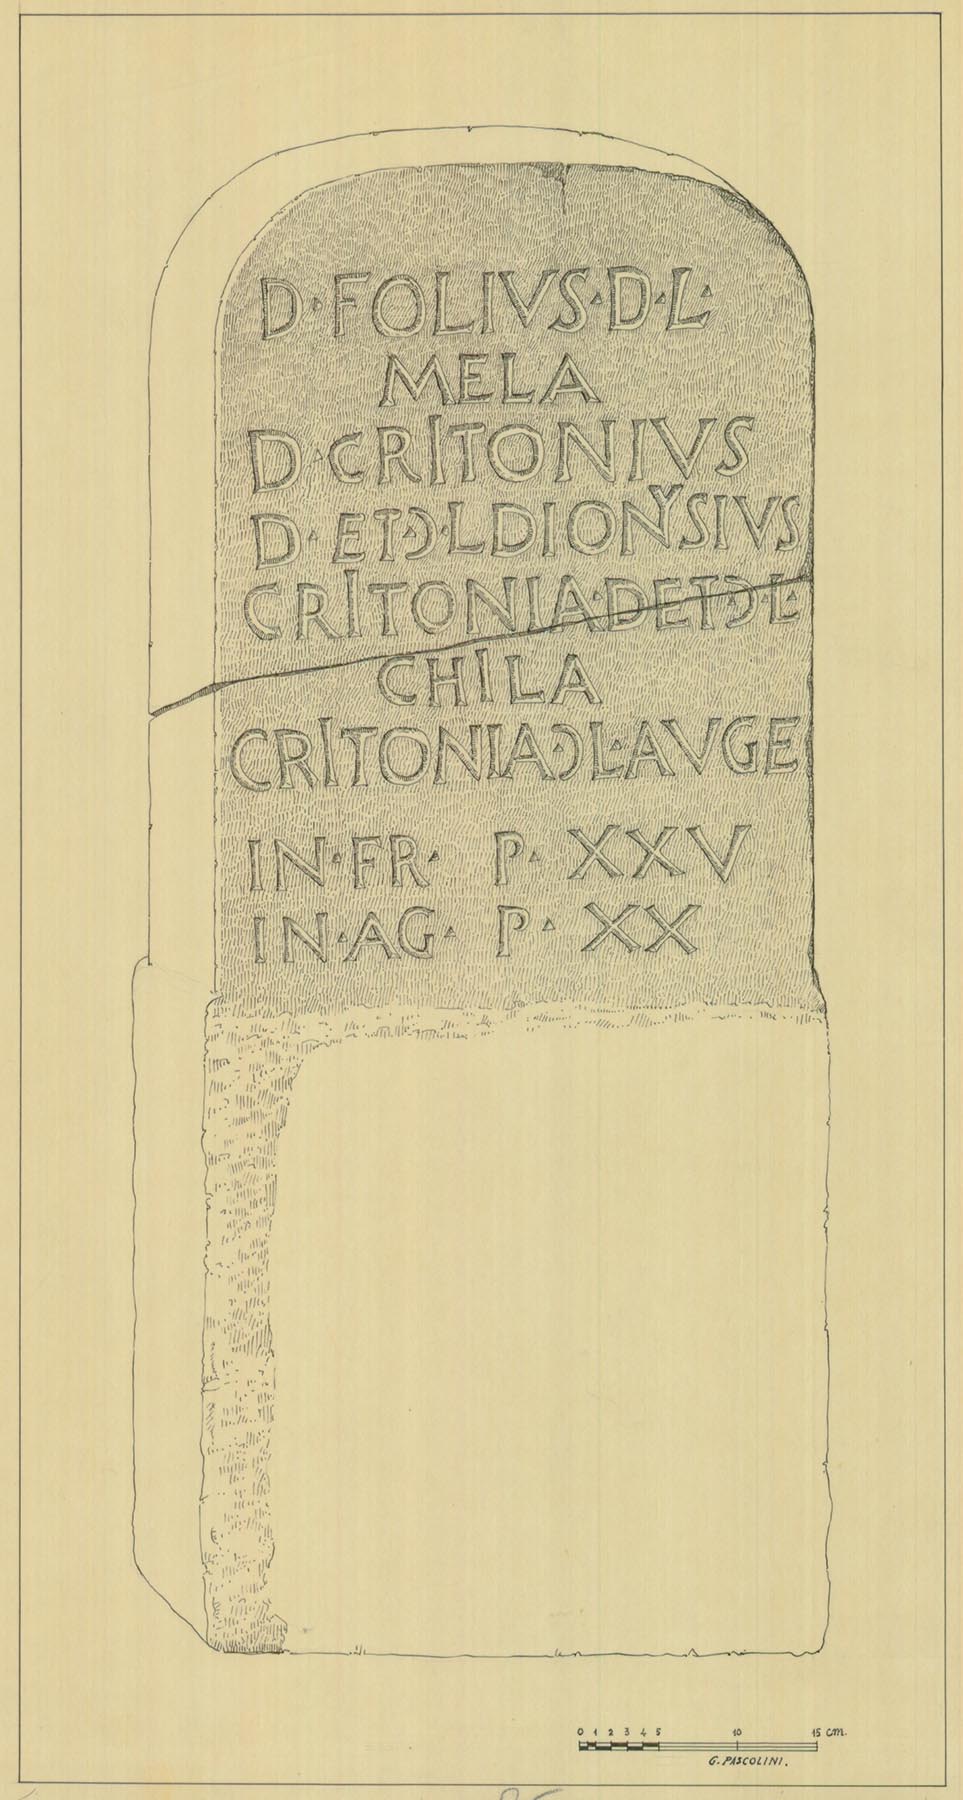 D·FOLIVS·D·L·
MELA
D·CRITONIVS
D·ET·Ɔ·L DIONYSIVS
CRITONIA·D ET·Ɔ·L·
CHILA
CRITONIA·Ɔ L·AVGE
IN·FR· P· XXV
IN·AG· P· XX
0 1 2 3 4 5 10 15 cm.
G. PASCOLINI.